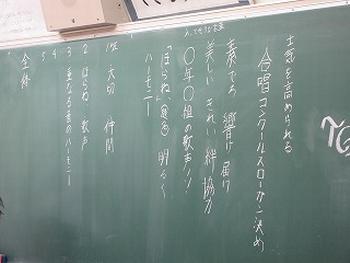 士気を高められる
合唱コンクールスローガン決め
入れたい言葉
素敵 響け 届け
美しい きれい 絆 協力
〇年〇組の歌声!!
「ほらね、」 明るく
ハーモニー
1 大切 仲間
2 ほらね 歌声
3 重なる音のハーモニー
4
5
全体